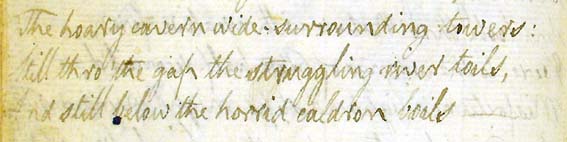 The hoary cavern wide-surrounding towers:
Still thro' the gap the struggling river toils,
And still below the horrid caldron boils